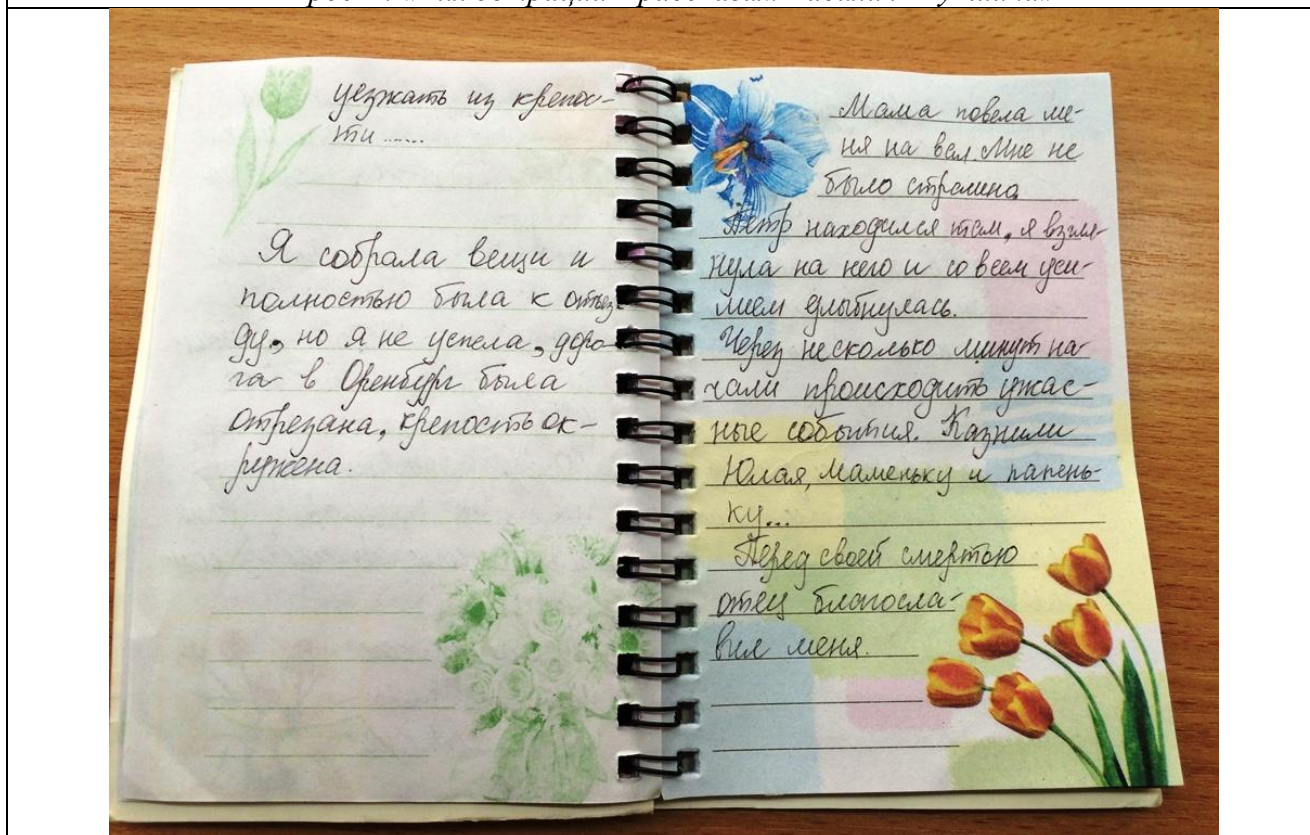 уезжать из крепос-
ти......
Я собрала вещи и
полностью была к отъез
ду, но я не успела, доро
га в Оренбург была
отрезана, крепость ок-
ружена.
Мама повела ме-
ня на вал. Мне не
было страшно
Петр находился там, я взгля-
нула на него и со всем уси-
лием улыбнулась.
Через несколько минут на-
чали происходить ужас-
ные события. Казнили
Юлая, маменьку и папень-
ку...
Перед своей смертью
отец благосла-
вил меня.